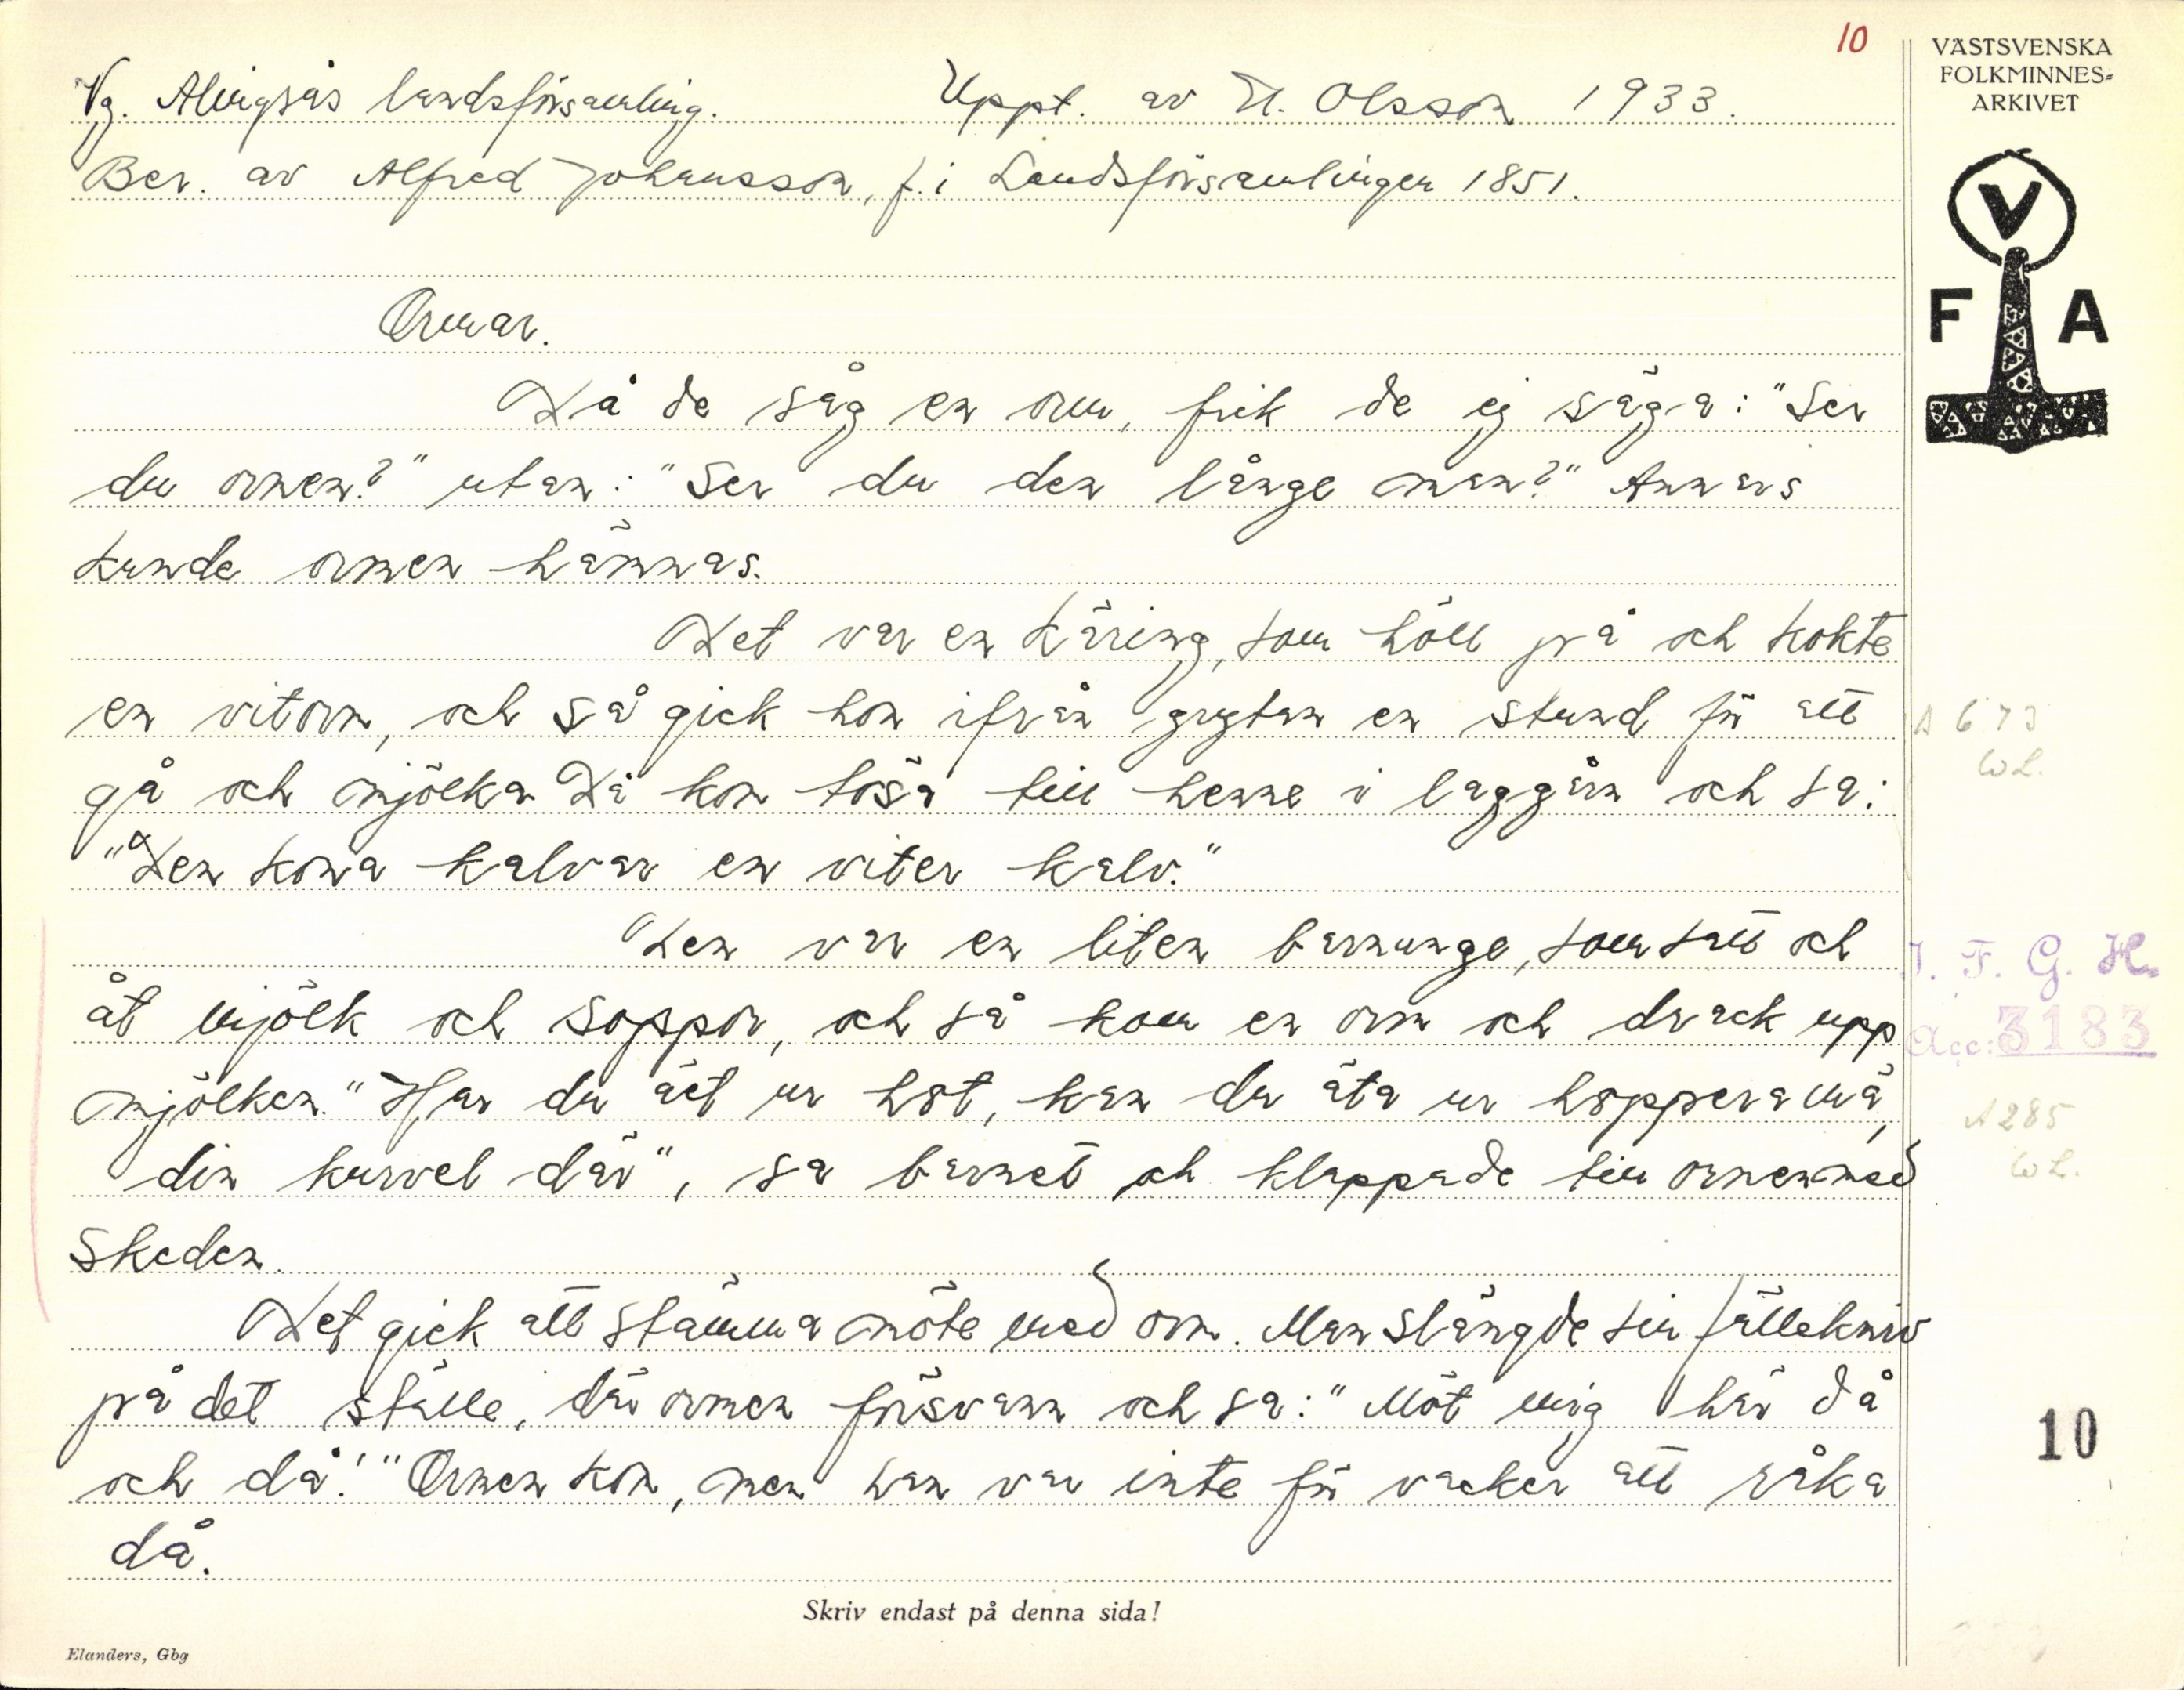 10
VÄSTSVENSKA
FOLKMINNES-
ARKIVET
Vg. Alingsås landsförsamling. Uppt. av E. Olsson 1933.
Ber. av Alfred Johansson, f. i Landsförsamlingen 1851.
V
F A
Ormar.
Då de såg en orm, fick de ej säga: "Ser
du ormen?" utan: "Ser du den långe man?" Annars
kunde ormen hämnas.
Det var en käring, som höll på och kokte
en vitorm, och så gick hon ifrån grytan en stund för att
gå och mjölka. Då kom tösa till henne i laggårn och sa:
"Den kowa kalvar en viter kalv."
Den var en liten barnunge, som satt och
åt mjölk och soppor, och så kom en orm och drack upp
mjölken. "Har du ät ur höt, kan du äta ur höppera mä,
din kurvel där", sa barnet och klappade till ormen med
skeden.
Det gick att stämma möte med orm. Man slängde sin fällekniv
på det ställe, där ormen försvann och sa: "Möt mig här då
och då!" Ormen kom, men han var inte för vacker att råka
då.
A 673
WL.
I. F. G. H.
Acc: 3183
A 285
WL.
10
Skriv endast på denna sida!
Elanders, Gbg